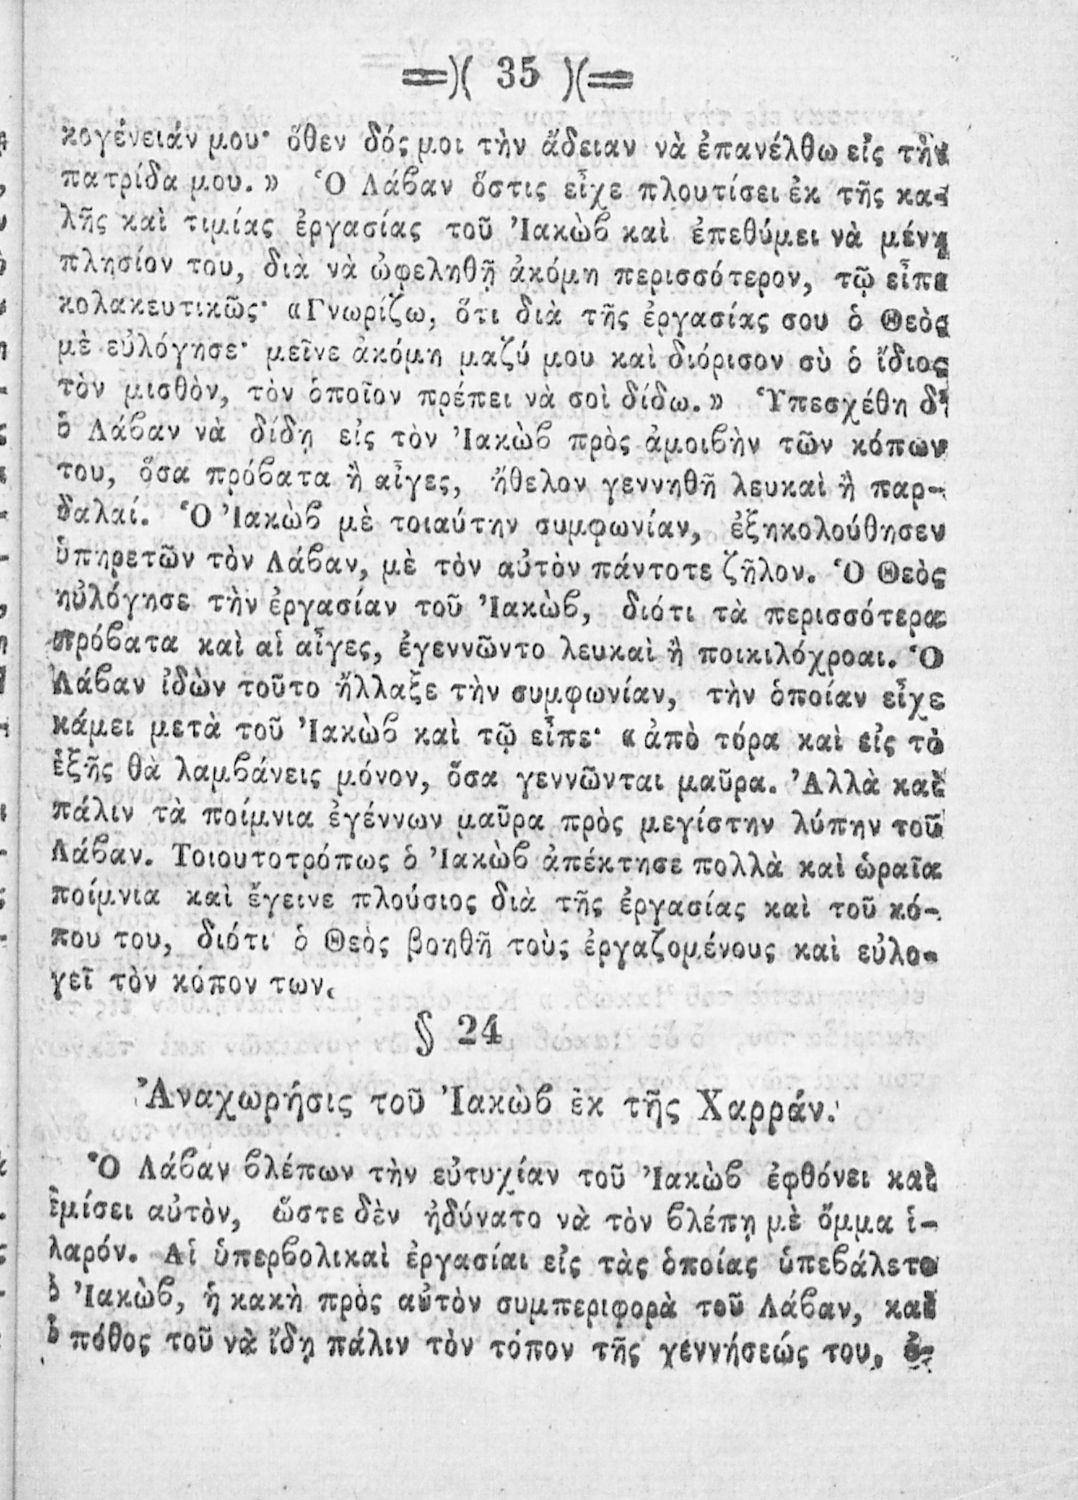 =)( 35 )(=
κογένειάν μου· ὅθεν δός μοι τὴν ἄδειαν νὰ ἐπανέλθω εἰς τὴν
πατρίδα μου.» Ὁ Λάβαν ὅστις εἶχε πλουτίσει ἐκ τῆς κα-
λῆς καὶ τιμίας ἐργασίας τοῦ Ἰακὼβ καὶ ἐπεθύμει νὰ μένῃ
πλησίον του, διὰ νὰ ὠφεληθῇ ἀκόμη περισσότερον, τῷ εἶπε
κολακευτικῶς· «Γνωρίζω, ὅτι διὰ τῆς ἐργασίας σου ὁ Θεὸς
μὲ εὐλόγησε· μεῖνε ἀκόμη μαζύ μου καὶ διόρισον σὺ ὁ ἴδιος
τὸν μισθὸν, τὸν ὁποῖον πρέπει νὰ σοὶ δίδω.» Ὑπεσχέθη δ'
ὁ Λάβαν νὰ δίδῃ εἰς τὸν Ἰακὼβ πρὸς ἀμοιβὴν τῶν κόπων
του, ὅσα πρόβατα ἢ αἶγες, ἤθελον γεννηθῆ λευκαὶ ἢ παρ-
δαλαί. Ὁ Ἰακὼβ μὲ τοιαύτην συμφωνίαν, ἐξηκολούθησεν
ὑπηρετῶν τὸν Λάβαν, μὲ τὸν αὐτὸν πάντοτε ζῆλον. Ὁ Θεὸς
ηὐλόγησε τὴν ἐργασίαν τοῦ Ἰακὼβ, διότι τὰ περισσότερα
πρόβατα καὶ αἱ αἶγες, ἐγεννῶντο λευκαὶ ἢ ποικιλόχροαι. Ὁ
Λάβαν ἰδὼν τοῦτο ἤλλαξε τὴν συμφωνίαν, τὴν ὁποίαν εἶχε
κάμει μετὰ τοῦ Ἰακὼβ καὶ τῷ εἶπε· «ἀπὸ τόρα καὶ εἰς τὸ
ἑξῆς θὰ λαμβάνεις μόνον, ὅσα γεννῶνται μαῦρα. Ἀλλὰ καὶ
πάλιν τὰ ποίμνια ἐγέννων μαῦρα πρὸς μεγίστην λύπην τοῦ
Λάβαν. Τοιουτοτρόπως ὁ Ἰακὼβ ἀπέκτησε πολλὰ καὶ ὡραῖα
ποίμνια καὶ ἔγεινε πλούσιος διὰ τῆς ἐργασίας καὶ τοῦ κό-
που του, διότι ὁ Θεὸς βοηθῆ τοὺς ἐργαζομένους καὶ εὐλο-
γεῖ τὸν κόπον των.
§ 24
Ἀναχωρήσις τοῦ Ἰακὼβ ἐκ τῆς Χαρράν.
Ὁ Λάβαν βλέπων τὴν εὐτυχίαν τοῦ Ἰακὼβ ἐφθόνει καὶ
ἐμίσει αὐτὸν, ὥστε δὲν ἠδύνατο νὰ τὸν βλέπῃ μὲ ὄμμα ἱ-
λαρόν. Αἱ ὑπερβολικαὶ ἐργασίαι εἰς τὰς ὁποίας ὑπεβάλετο
ὁ Ἰακὼβ, ἡ κακὴ πρὸς αὐτὸν συμπεριφορὰ τοῦ Λάβαν, καὶ
ὁ πόθος τοῦ νὰ ἴδῃ πάλιν τὸν τόπον τῆς γεννήσεώς του,